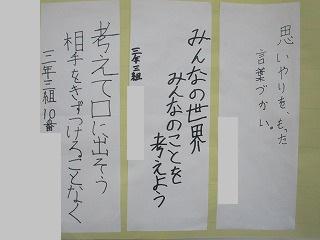 思いやりを、もった
言葉づかい。
みんなの世界
みんなのことを
考えよう
三年三組
考えて口に出そう
相手をきずつけることなく
三年三組10番